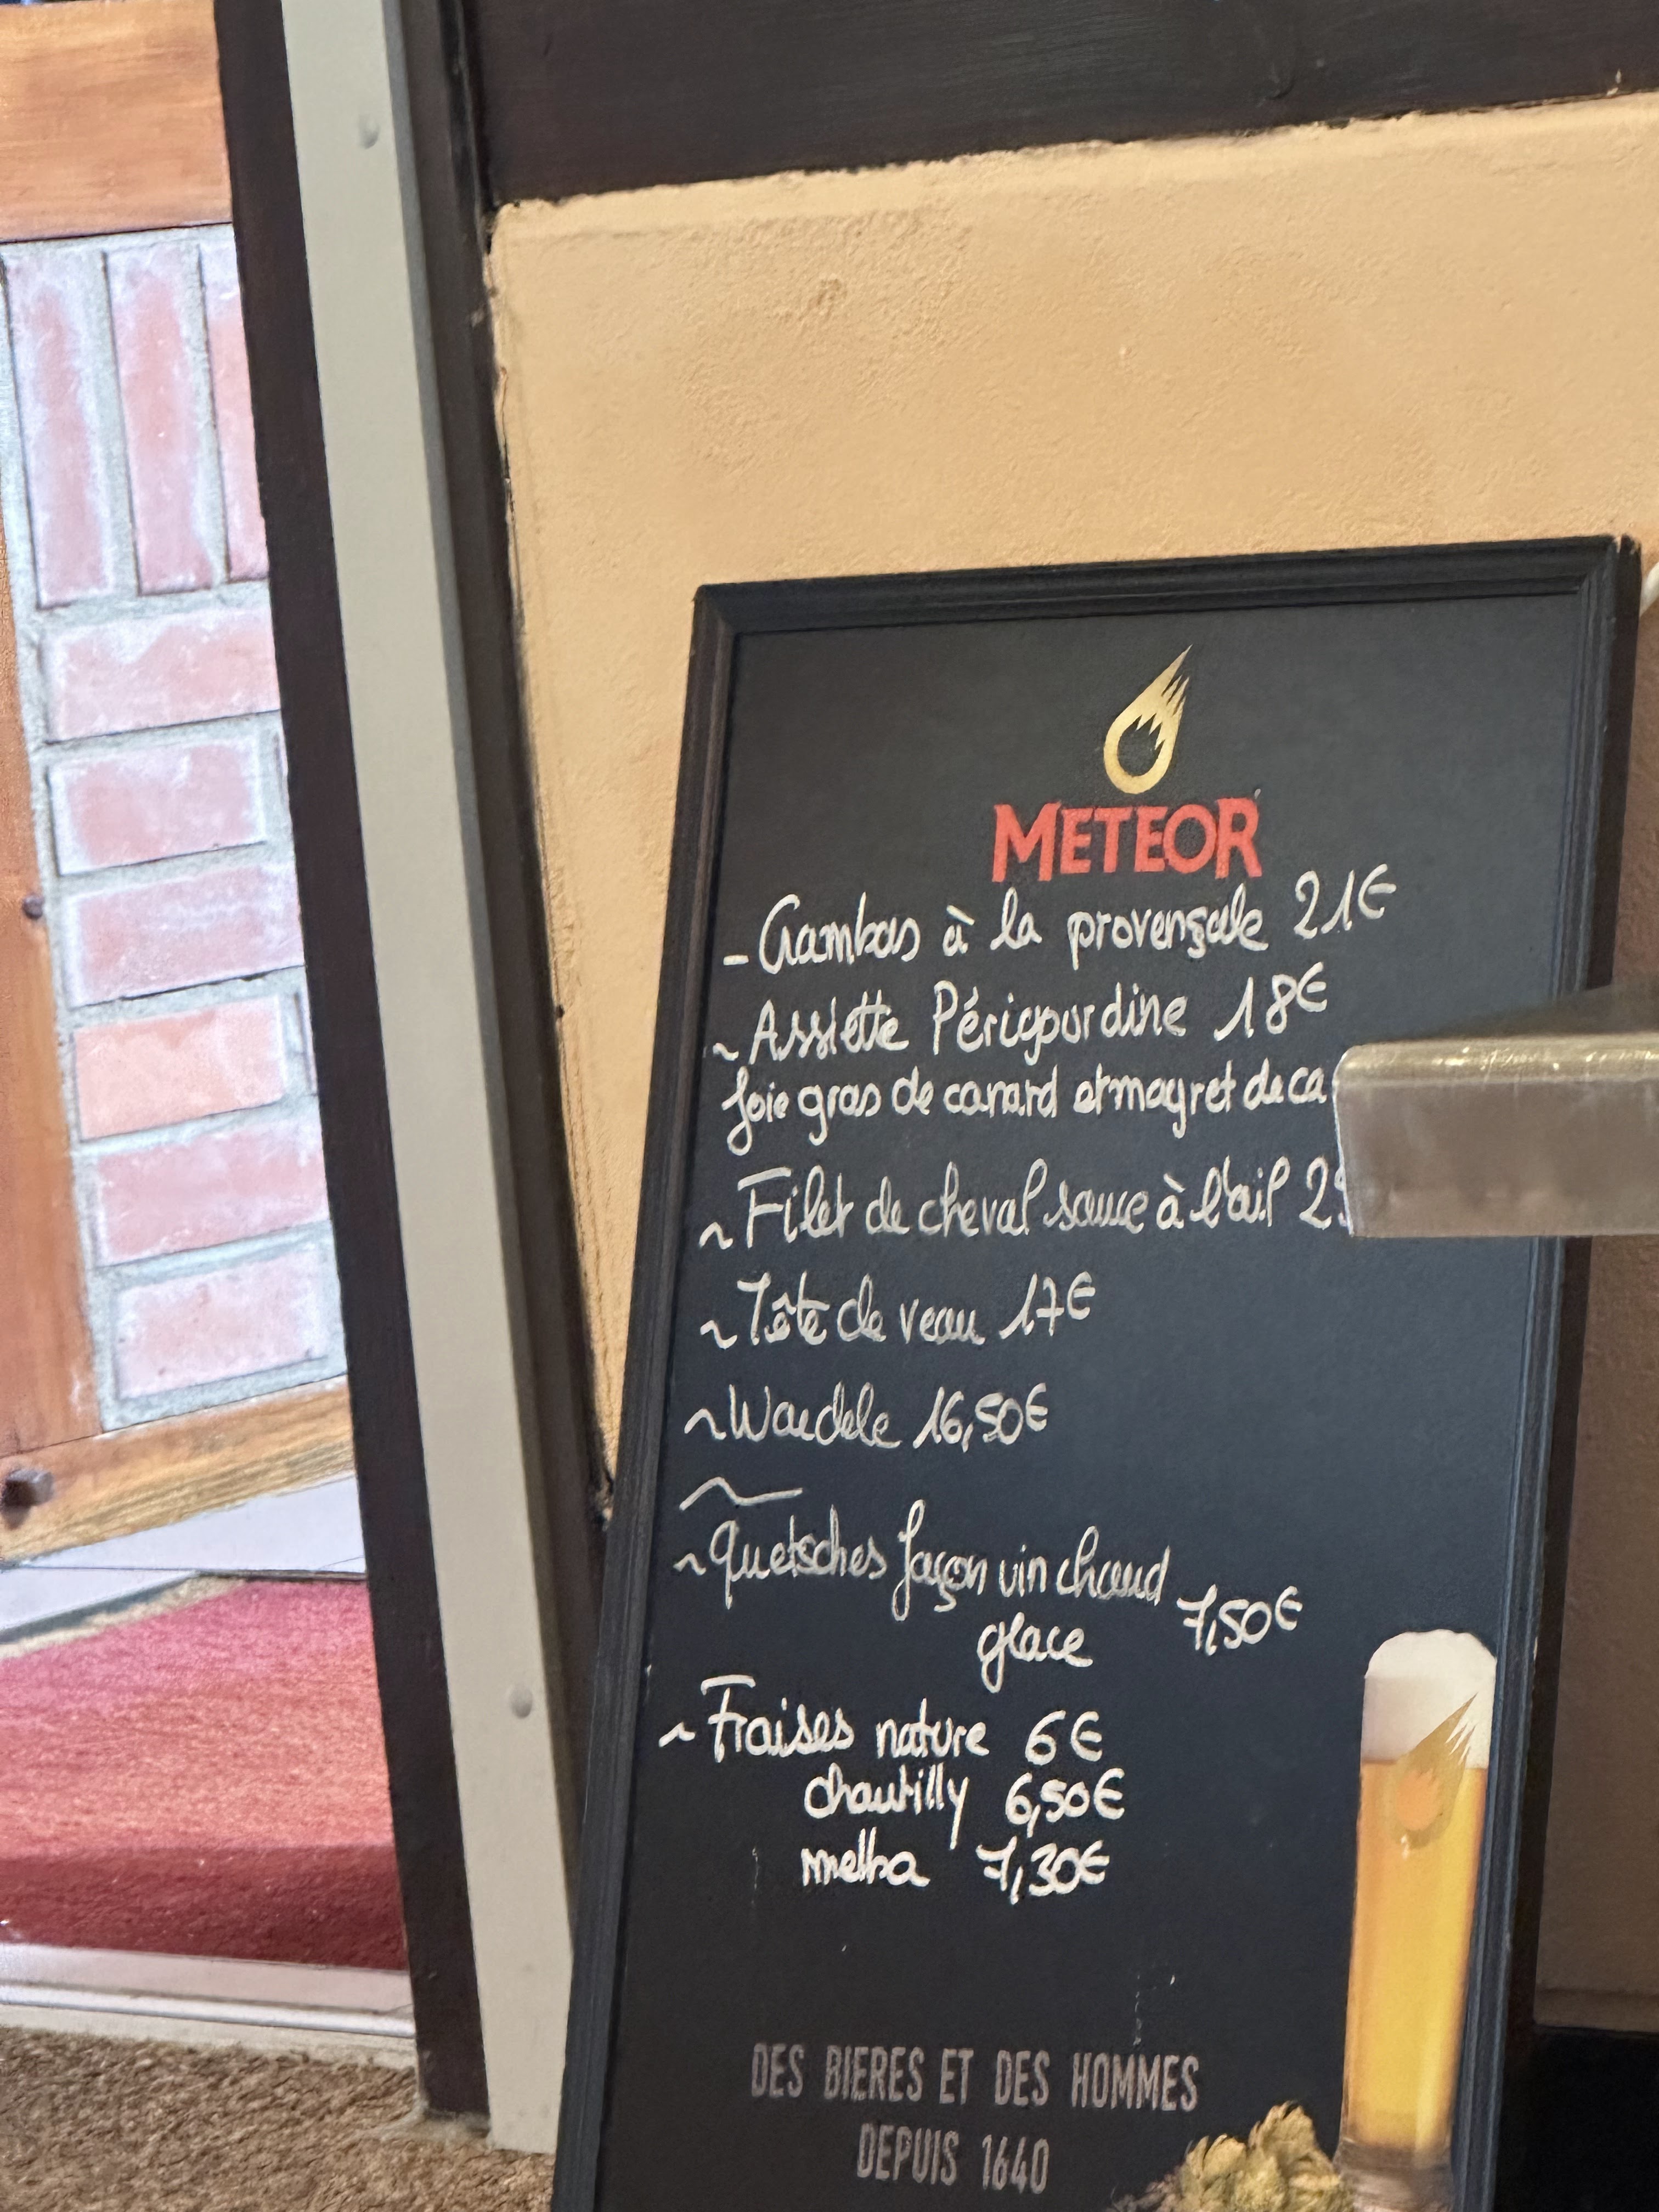 METEOR
- Gambas à la provençale 21€
~ Assiette Périgourdine 18€
foie gras de canard et magret de ca
~ Filet de cheval sauce à l'ail 2
~ Tête de veau 17€
~ Waedele 16,50€
~
~ Quetsches façon vin chaud
glace 7,50€
~ Fraises nature 6€
chantilly 6,50€
melba 7,30€
DES BIERES ET DES HOMMES
DEPUIS 1640